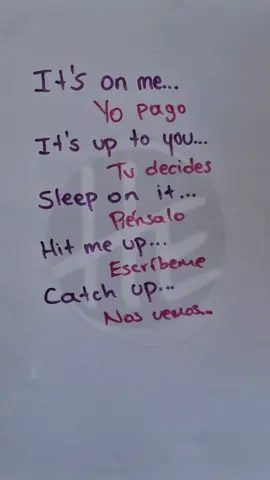 It's on me...
Yo pago
It's up to you...
Tu decides
Sleep on it...
Piénsalo
Hit me up...
Escríbeme
Catch up...
Nos vemos...